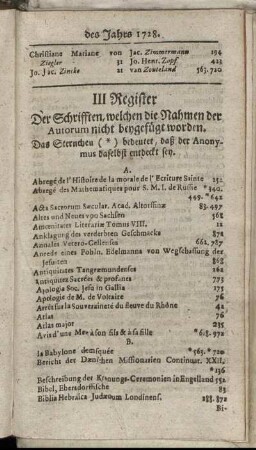 des Jahrs 1728.
Christiane Mariane von Jac. Zimmermann 194
Ziegler 51 Jo. Henr. Zopf 423
Jo. Jac. Zincke 21 van Zouteland 563. 720
III Register
Der Schrifften, welchen die Nahmen der
Autorum nicht beygefügt worden.
Das Sternchen (*) bedeutet, daß der Anony-
mus daselbst entdeckt sey.
A.
Abregé de l'Histoire de la morale de l'Ecriture Sainte 251
Abregé des Mathematiques pour S. M. I. de Russie *340.
449. *642
Acta Sacrorum Sæcular. Acad. Altorfinæ 83. 497
Altes und Neues vpo Sachsen 362
Amœnitates Literariæ Tomus VIII. 11
Anklagung des verderbten Geschmacks 878
Annales Vetero-Cellenses 662. 787
Anrede eines Pohln. Edelmanns von Wegschaffung der
Jesuiten 862
Antiquitates Tangremundenses 162
Antiquites Sacrées & profanes 173
Apologia Soc. Jesu in Gallia 175
Apologie de M. de Voltaire 76
Arrêt sur la Souveraineté du fleuve du Rhône 42
Atlas 76
Atlas major 235
Avis d'une Mere à son fils & à sa fille *618. 972
B.
la Babylone demsquée *563. *720
Bericht der Dänischen Missionarien Continuat. XXII.
*136
Beschreibung der Krönungs-Ceremonien in Engelland 552
Bibel, Ebersdorffische 83
Biblia Hebraica Judæorum Londinens. 288. 872
Bi-